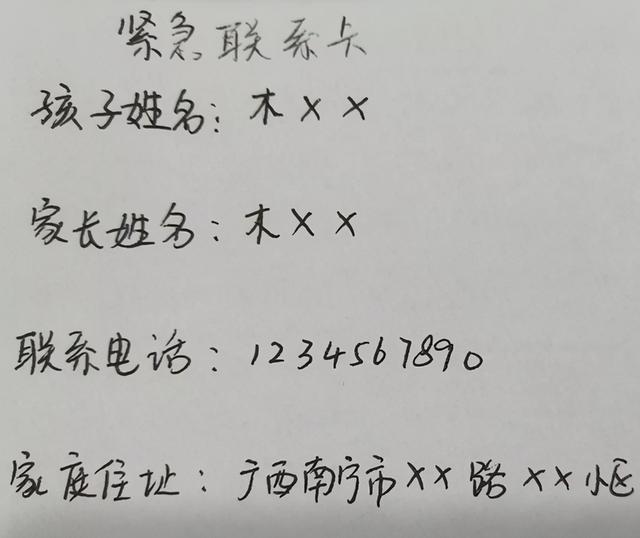 紧急联系卡
孩子姓名：木××
家长姓名：木××
联系电话：1234567890
家庭住址：广西南宁市××路××小区